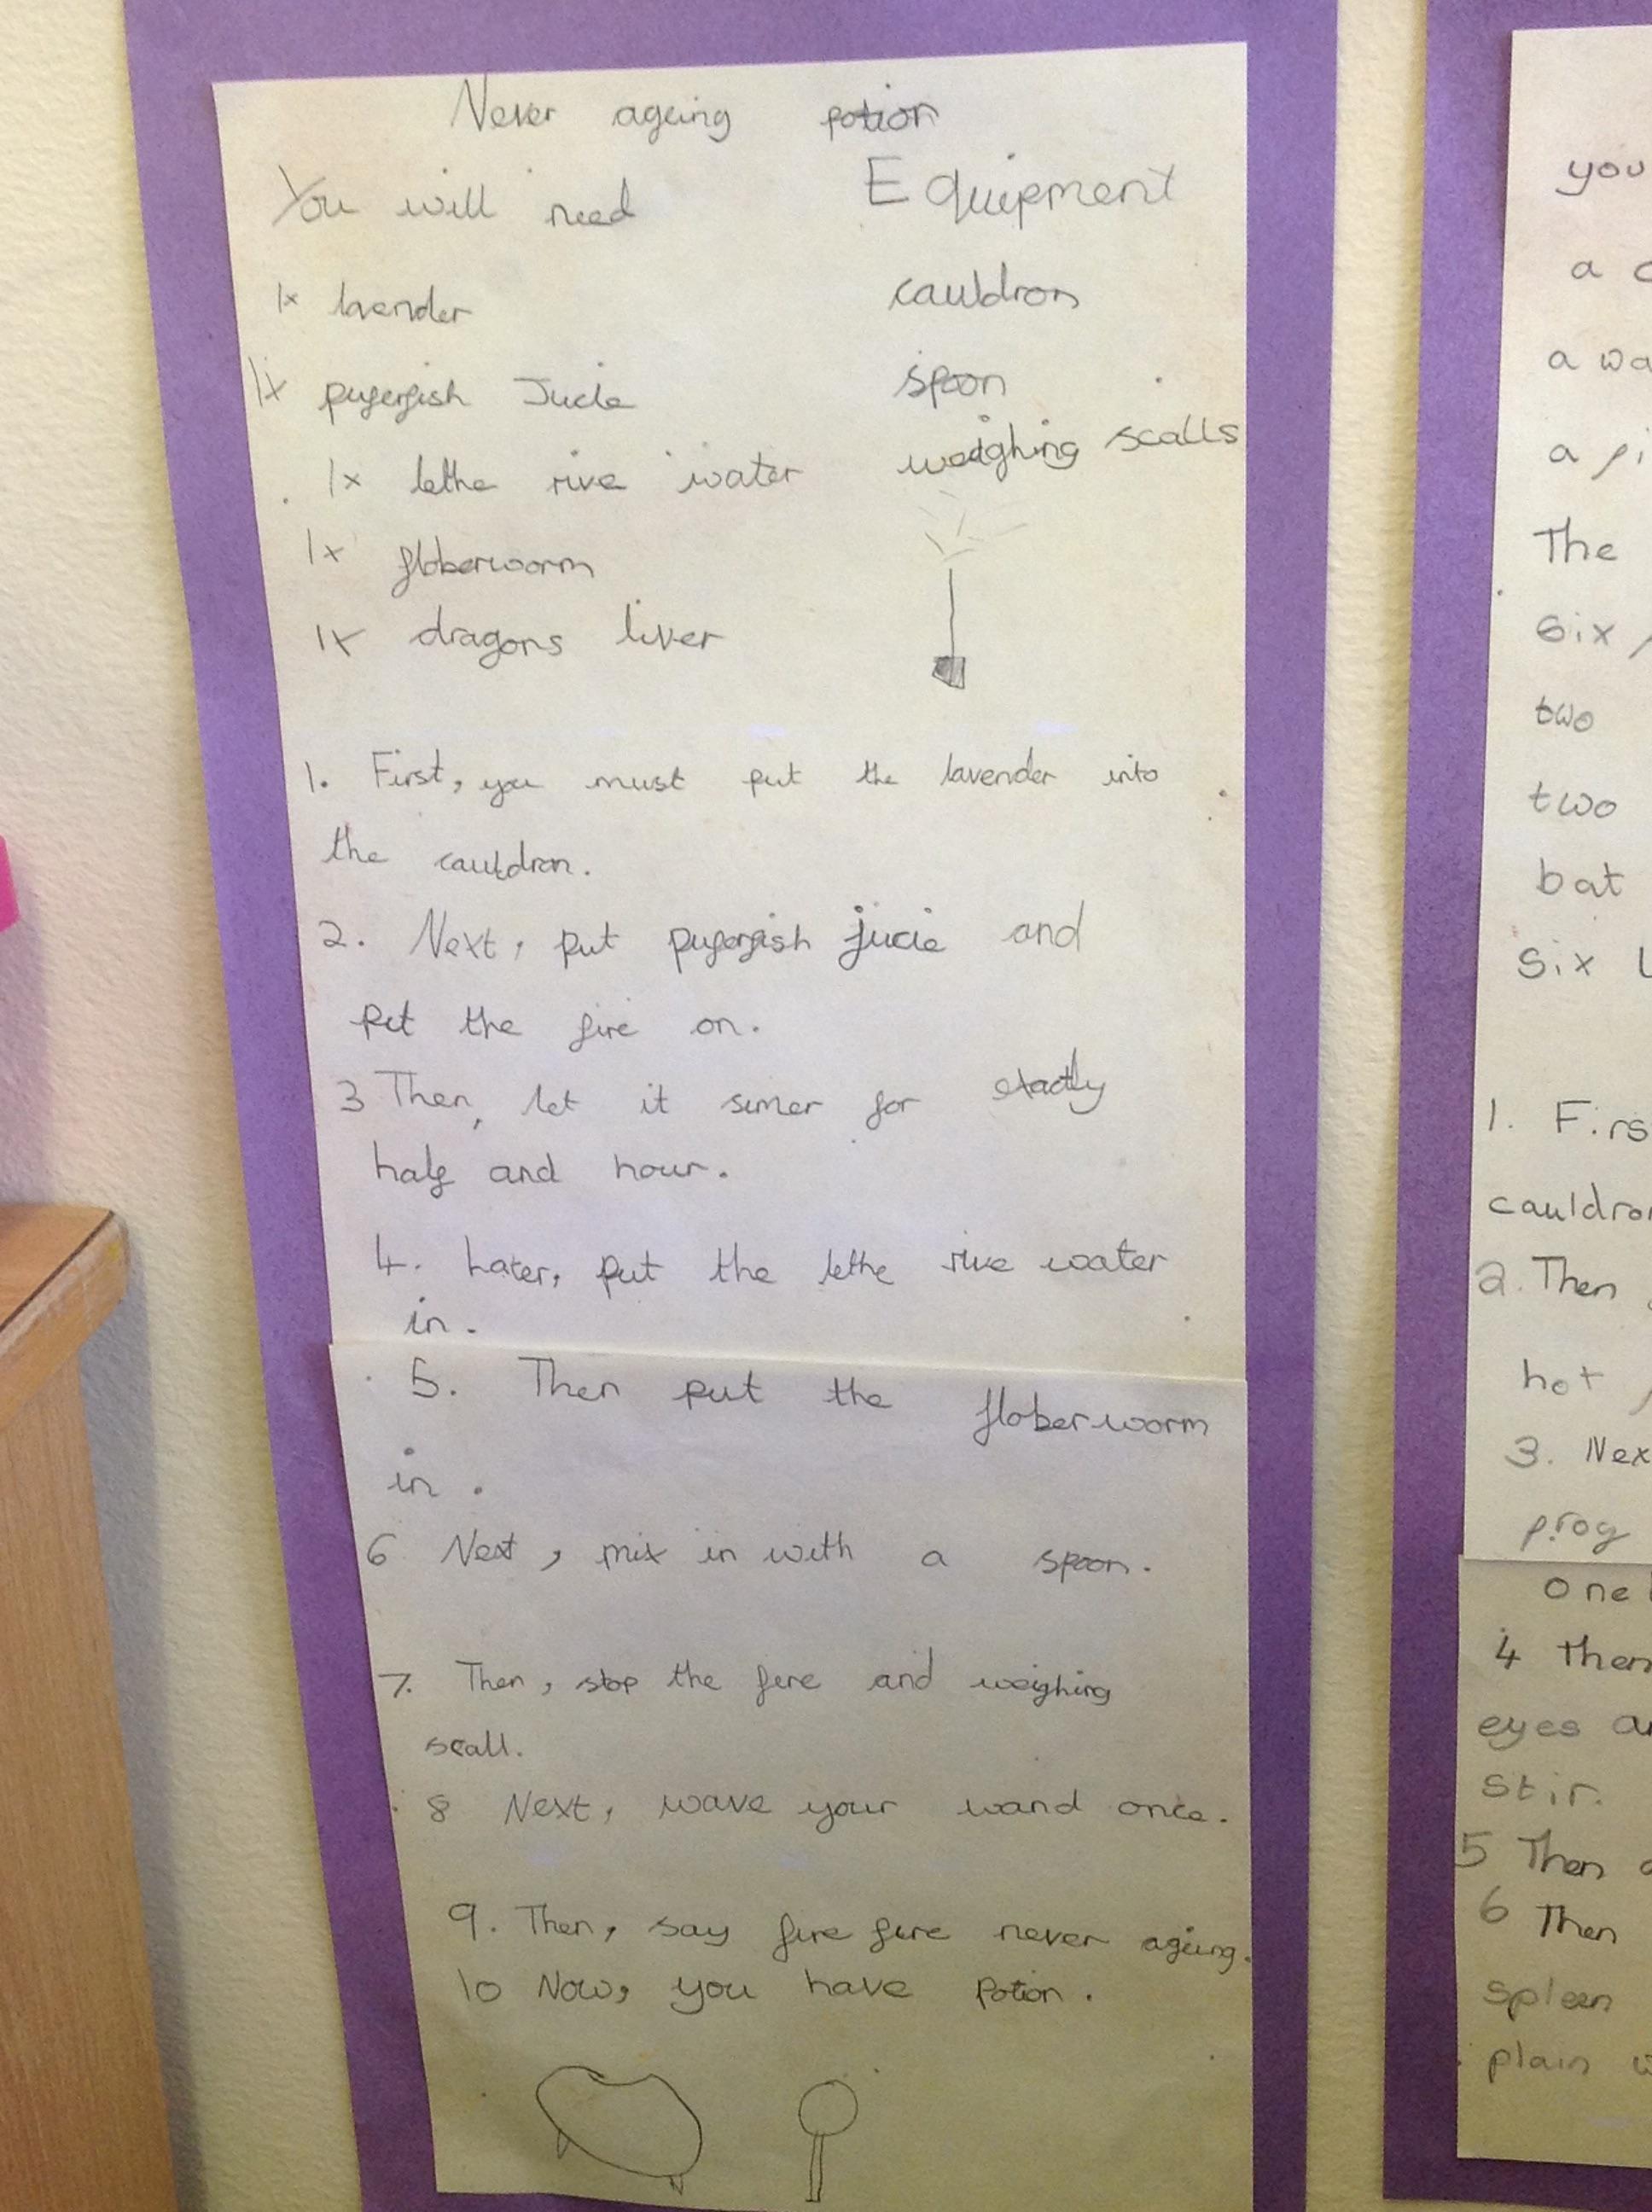 Never ageing potion
You will need
1x lavender
1x pugergish Jucie
1x lethe rive water
1x floberworm
1x dragons liver
Equipment
cauldron
spoon
weighing scalls
1. First, you must put the lavender into
the cauldron.
2. Next, put pugergish jucie and
put the fire on.
3 Then, let it simer for exactly
half and hour.
4. Later, put the lethe rive water
in.
5. Then put the floberworm
in.
6 Next, mix in with a spoon.
7. Then, stop the fire and weighing
scall.
8 Next, wave your wand once.
9. Then, say fire fire never ageing.
10 Now, you have potion.
you
a
a wa
a pi
The
six
two
two
bat
six
1. Firs
cauldron
2. Then
hot
3. Nex
prog
one
4 Then
eyes
stir.
5 Then
6 Then
spleen
plain